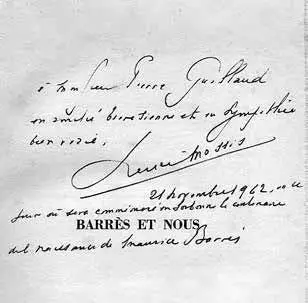 à Monsieur Pierre Guillaud
en amitié barrésienne et en sympathie
bien vraie,
Henri Massis
21 novembre 1962, en ce
jour où sera commémoré en Sorbonne le centenaire
BARRÈS ET NOUS
de la naissance de Maurice Barrès